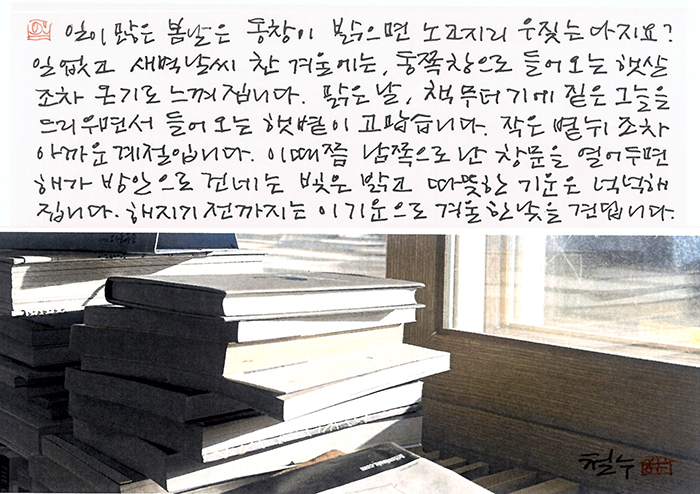 일이 많은 봄날은 동창이 밝으면 노고지리 우짖는다지요?
일 없고 새벽날씨 찬 겨울에는, 동쪽창으로 들어오는 햇살
조차 온기로 느껴집니다. 맑은 날, 책 무더기에 짙은 그늘을
드리우면서 들어오는 햇볕이 고맙습니다. 작은 볕뉘 조차
아까운 계절입니다. 이때쯤 남쪽으로 난 창문을 열어두면
해가 방안으로 건네는 빛은 밝고 따뜻한 기운은 넉넉해
집니다. 해지기 전까지는 이 기운으로 겨울 한낮을 견딥니다.
철수